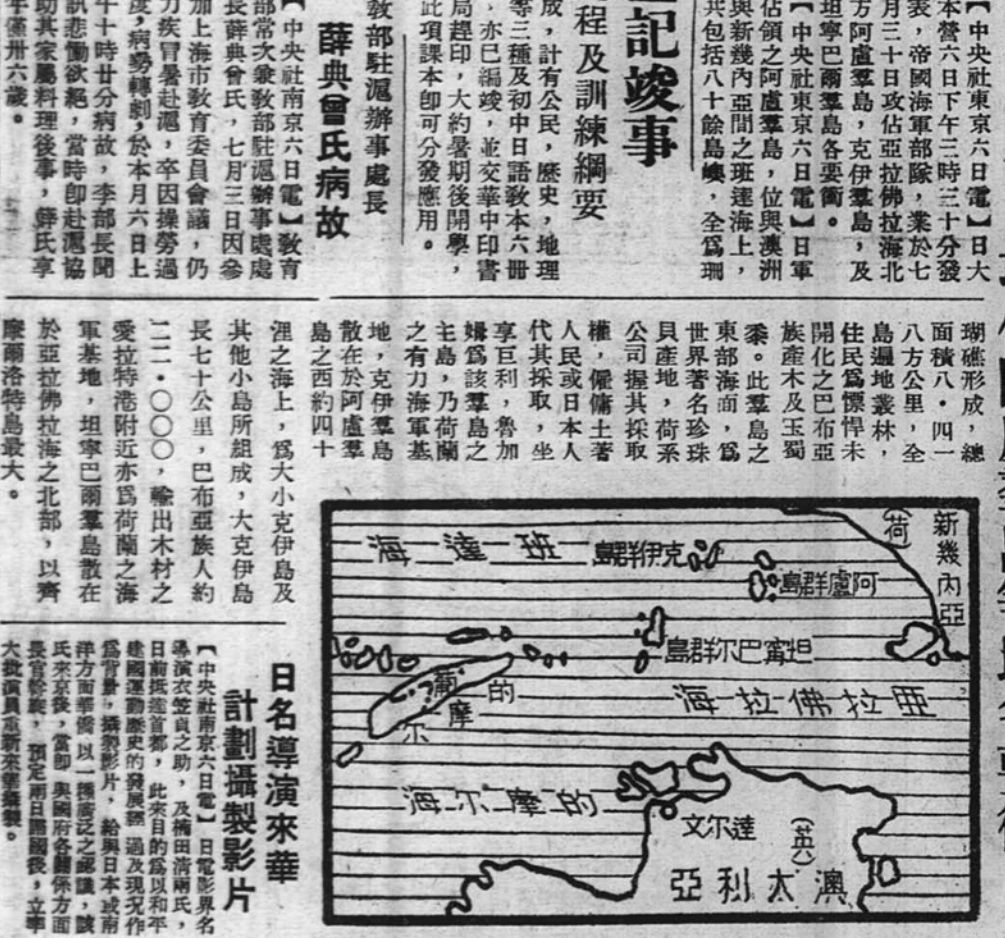 【中央社東京六日電】日大
本營六日下午三時三十分發
表，帝國海軍部隊，業於七
月三十日攻佔亞拉佛拉海北
方阿盧羣島，克伊羣島，及
坦寧巴爾羣島各要衝。
【中央社東京六日電】日軍
佔領之阿盧羣島，位與澳洲
與新幾內亞間之班達海上，
共包括八十餘島嶼，全爲珊
瑚礁形成，總
面積八・四一
八方公里，全
島遍地叢林，
住民爲慓悍未
開化之巴布亞
族產木及玉蜀
黍。此羣島之
東部海面，爲
世界著名珍珠
貝產地，荷系
公司握其採取
權，僱傭土著
人民或日本人
代其採取，坐
享巨利，魯加
姆爲該羣島之
主島，乃荷蘭
之有力海軍基
地，克伊羣島
散在於阿盧羣
島之西約四十
浬之海上，爲大小克伊島及
其他小島所組成，大克伊島
長七十公里，巴布亞族人約
二二・〇〇〇，輸出木材之
愛拉特港附近亦爲荷蘭之海
軍基地，坦寧巴爾羣島散在
於亞拉佛拉海之北部，以齊
摩爾洛特島最大。
記竣事
程及訓練綱要
成，計有公民，歷史，地理
等三種及初中日語教本六冊
，亦已編竣，並交華中印書
局趕印，大約暑期後開學，
此項課本卽可分發應用。
敎部駐滬辦事處長
薛典曾氏病故
【中央社南京六日電】敎育
部常次兼敎部駐滬辦事處處
長薛典曾氏，七月三日因參
加上海市敎育委員會議，仍
力疾冒暑赴滬，卒因操勞過
度，病勢轉劇，於本月六日上
午十時廿分病故，李部長聞
訊悲慟欲絕，當時卽赴滬協
助其家屬料理後事，薛氏享
年僅卅六歲。
新幾內亞
（荷）
班達海
克伊群島
阿盧群島
坦甯巴尔群島
亜拉佛拉海
葡
的摩尔
的摩尔海
達尔文
（英）
澳太利亞
日名導演來華
計劃攝製影片
【中央社南京六日電】日電影界名
導演衣笠貞之助，及楠田清兩氏，
日前抵達首都，此來目的爲以和平
建國運動歷史的發展經過及現況作
爲背景，攝製影片，給與日本或南
洋方面華僑以一種廣泛之認識，該
氏來京後，當卽與國府各關係方面
長官幹旋，預定兩日歸國後，立率
大批演員重新來華攝製。